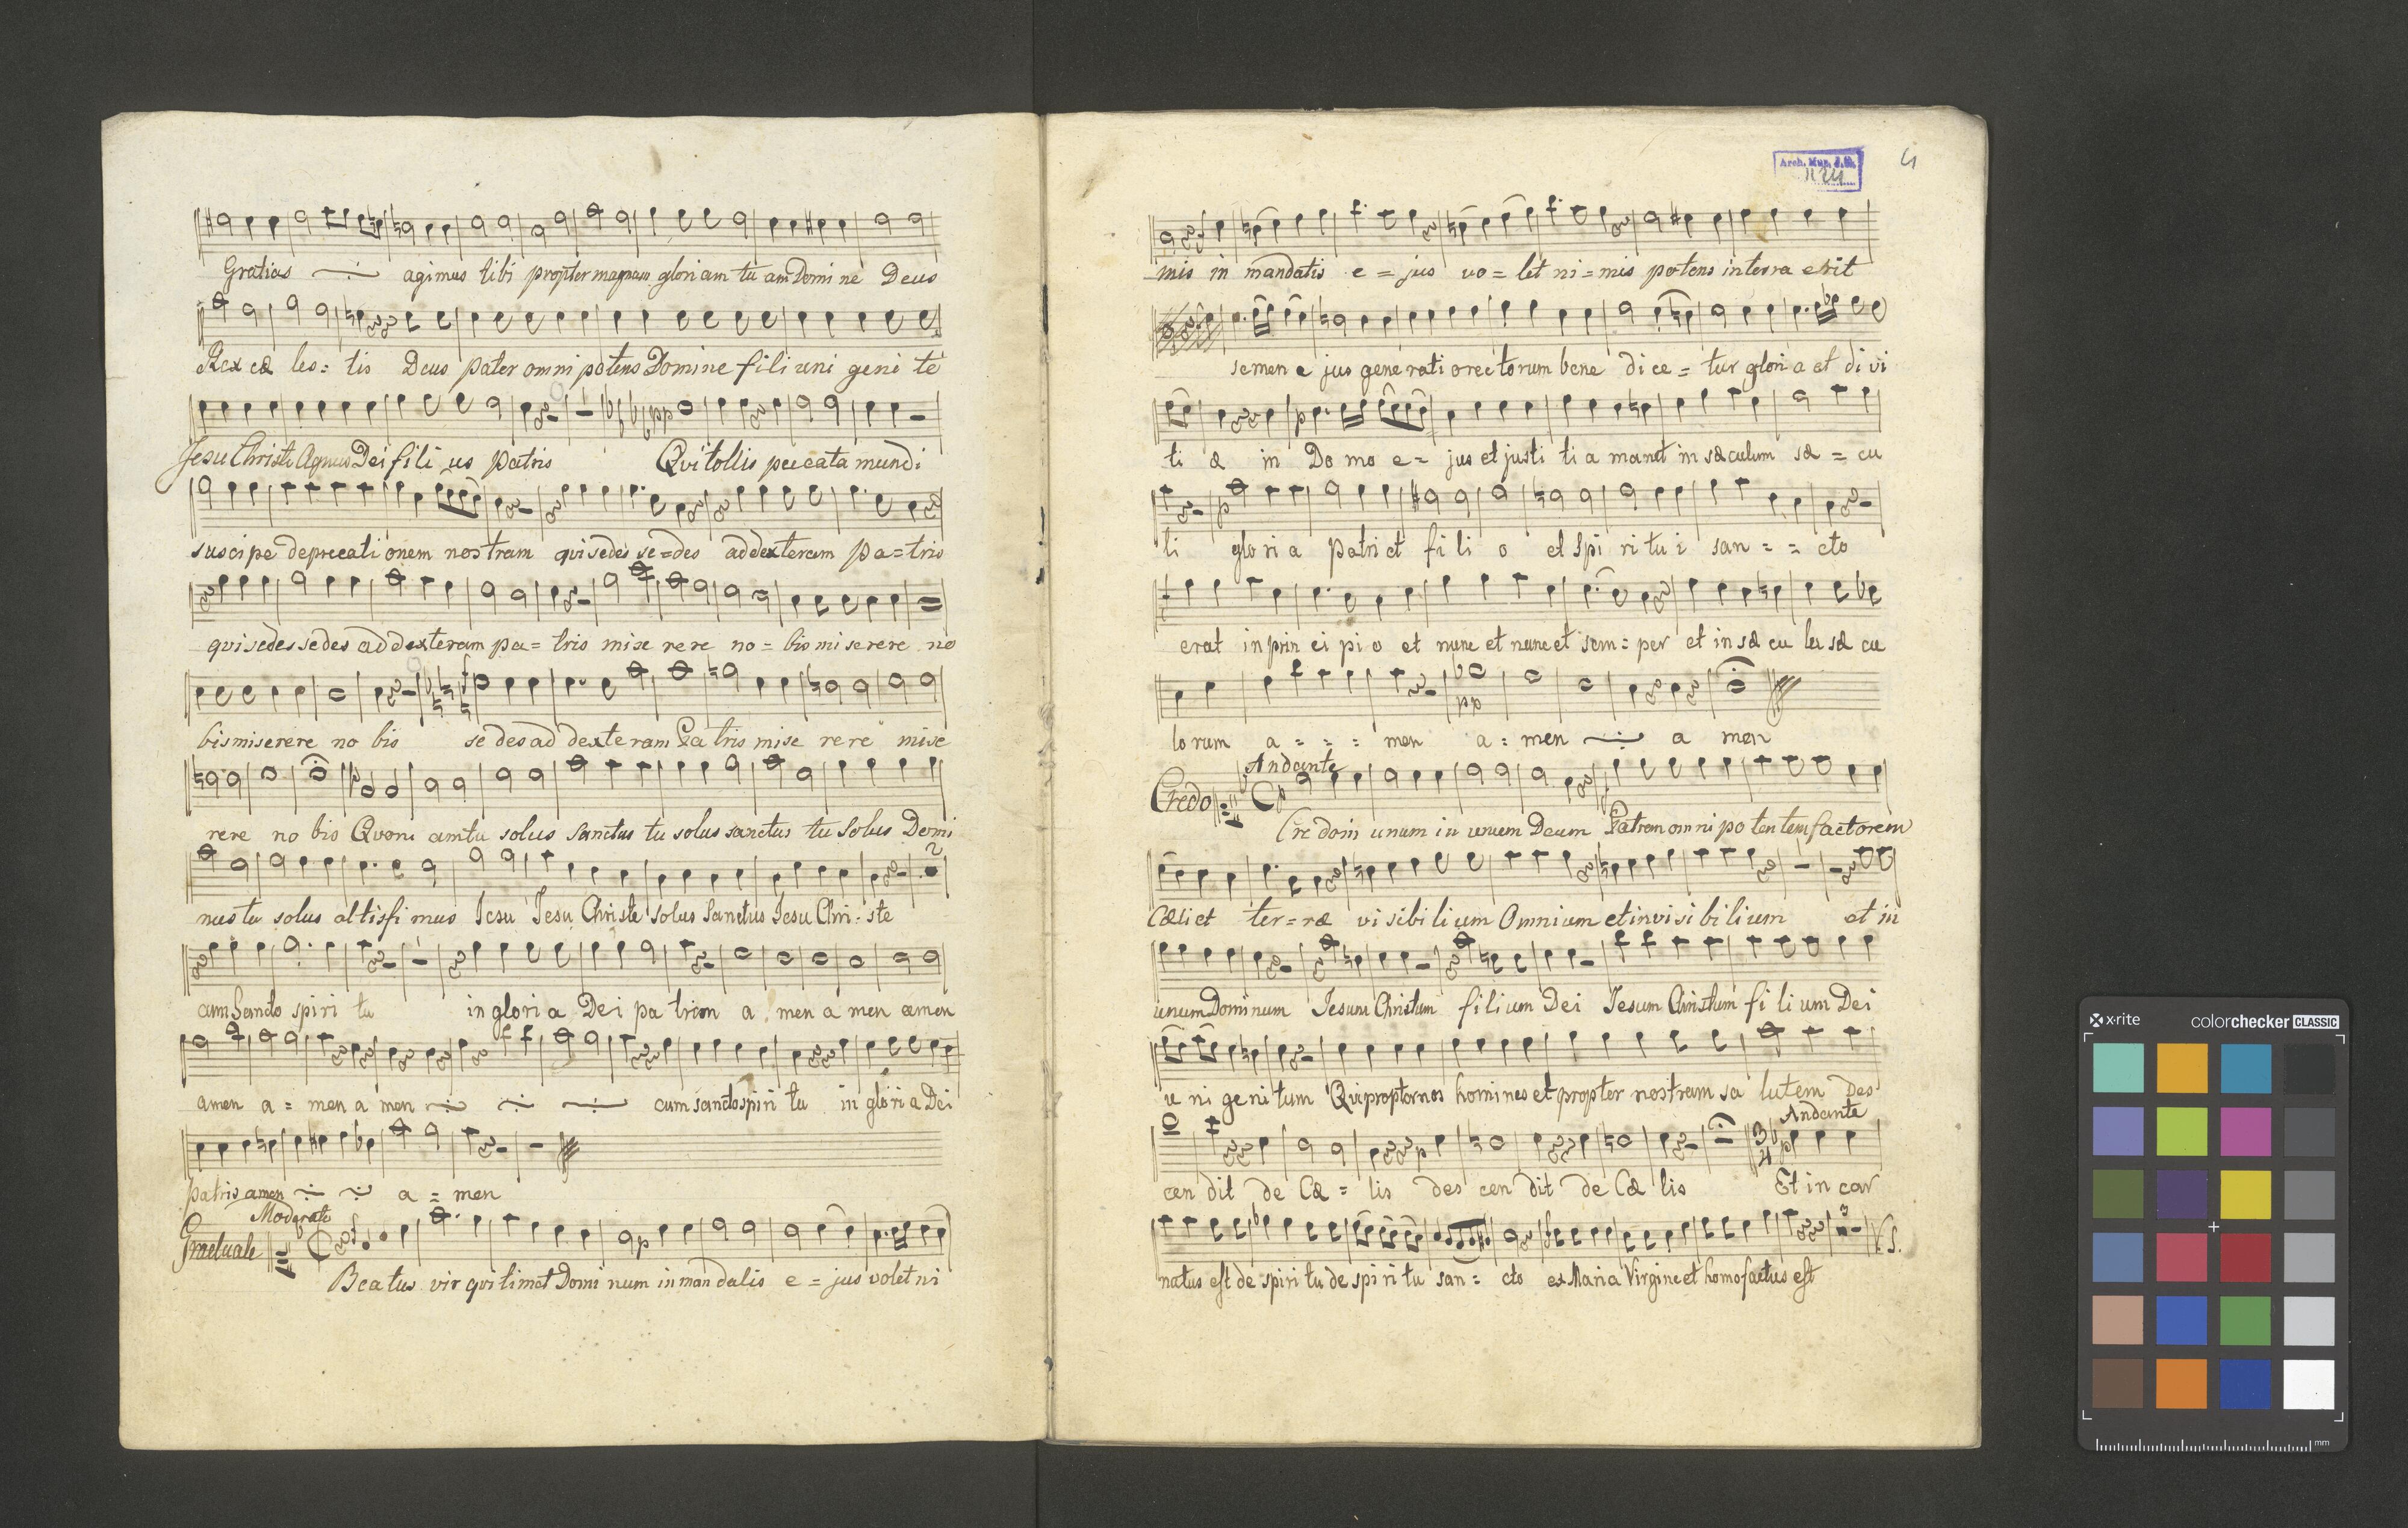 Gratias agimus tibi propter magnam gloriam tu am Domi ne Deus
Rex cæ les = tis Deus pater omni potens Domine fili uni geni te
Jesu Christe Agnus Dei fili us patris Qui tollis peccata mundi
suscipe deprecati onem nostram qui sedes se = des ad dexteram pa = tris
qui sedes sedes ad dexteram pa = tris mise rere no = bis mi serere no
bis miserere no bis se des ad dexteram Pa tris mise rere mise
rere no bis Quoni am tu solus Sanctus tu solus sanctus tu Solus Domi
nus tu solus altissi mus Jesu Jesu Christe solus Sanctus Jesu Chri = ste
cum Sancto spiri tu in glori a Dei pa triam a men a men amen
amen a = men a men cum sancto spiri tu in glori a Dei
patris amen a = men
Moderato
Graduale
Beatus vir qui timet Domi num in man datis e = jus volet ni
Arch. Mus. J.G.
4
mis in mandatis e = jus vo = let ni = mis potens in terra erit
semen e jus gene rati o rectorum bene di ce = tur glori a et di vi
ti æ in Do mo e = jus et justi ti a manet in sæculum sæ = cu
li glo ri a patri et fi li o et Spi ri tu i san = = cto
erat in prin ci pi o et nunc et nunc et sem = per et in sæ cu la sæ cu
lo rum a = = = men a = men a men
Andante
Credo
Cre do in unum in unum Deum Patrem omni po tentem factorem
Cæli et ter = ræ vi sibi li um Omnium et invi si bi lium et in
unum Dominum Jesum Christum fili um Dei Jesum Christum fi li um Dei
u ni ge ni tum Qui propter nos homines et propter nostram sa lutem Des
Andante
cen dit de Cæ = lis des cen dit de Cæ lis Et in car
natus est de spiri tu de spi ri tu san = cto ex Maria Virgine et homo factus est
V. S.
x-rite colorchecker CLASSIC
mm